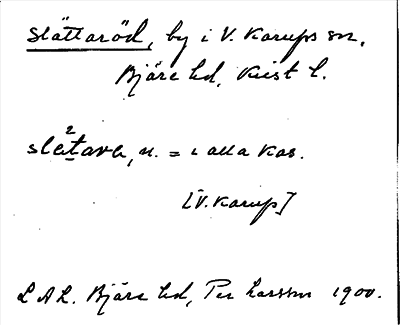 Slättaröd, by i V. Karups sn,
Bjäre hd, Krist. l.
slätara, n. = i alla kas.
[V. Karup]
L A L. Bjäre hd, Per Larsson 1900.